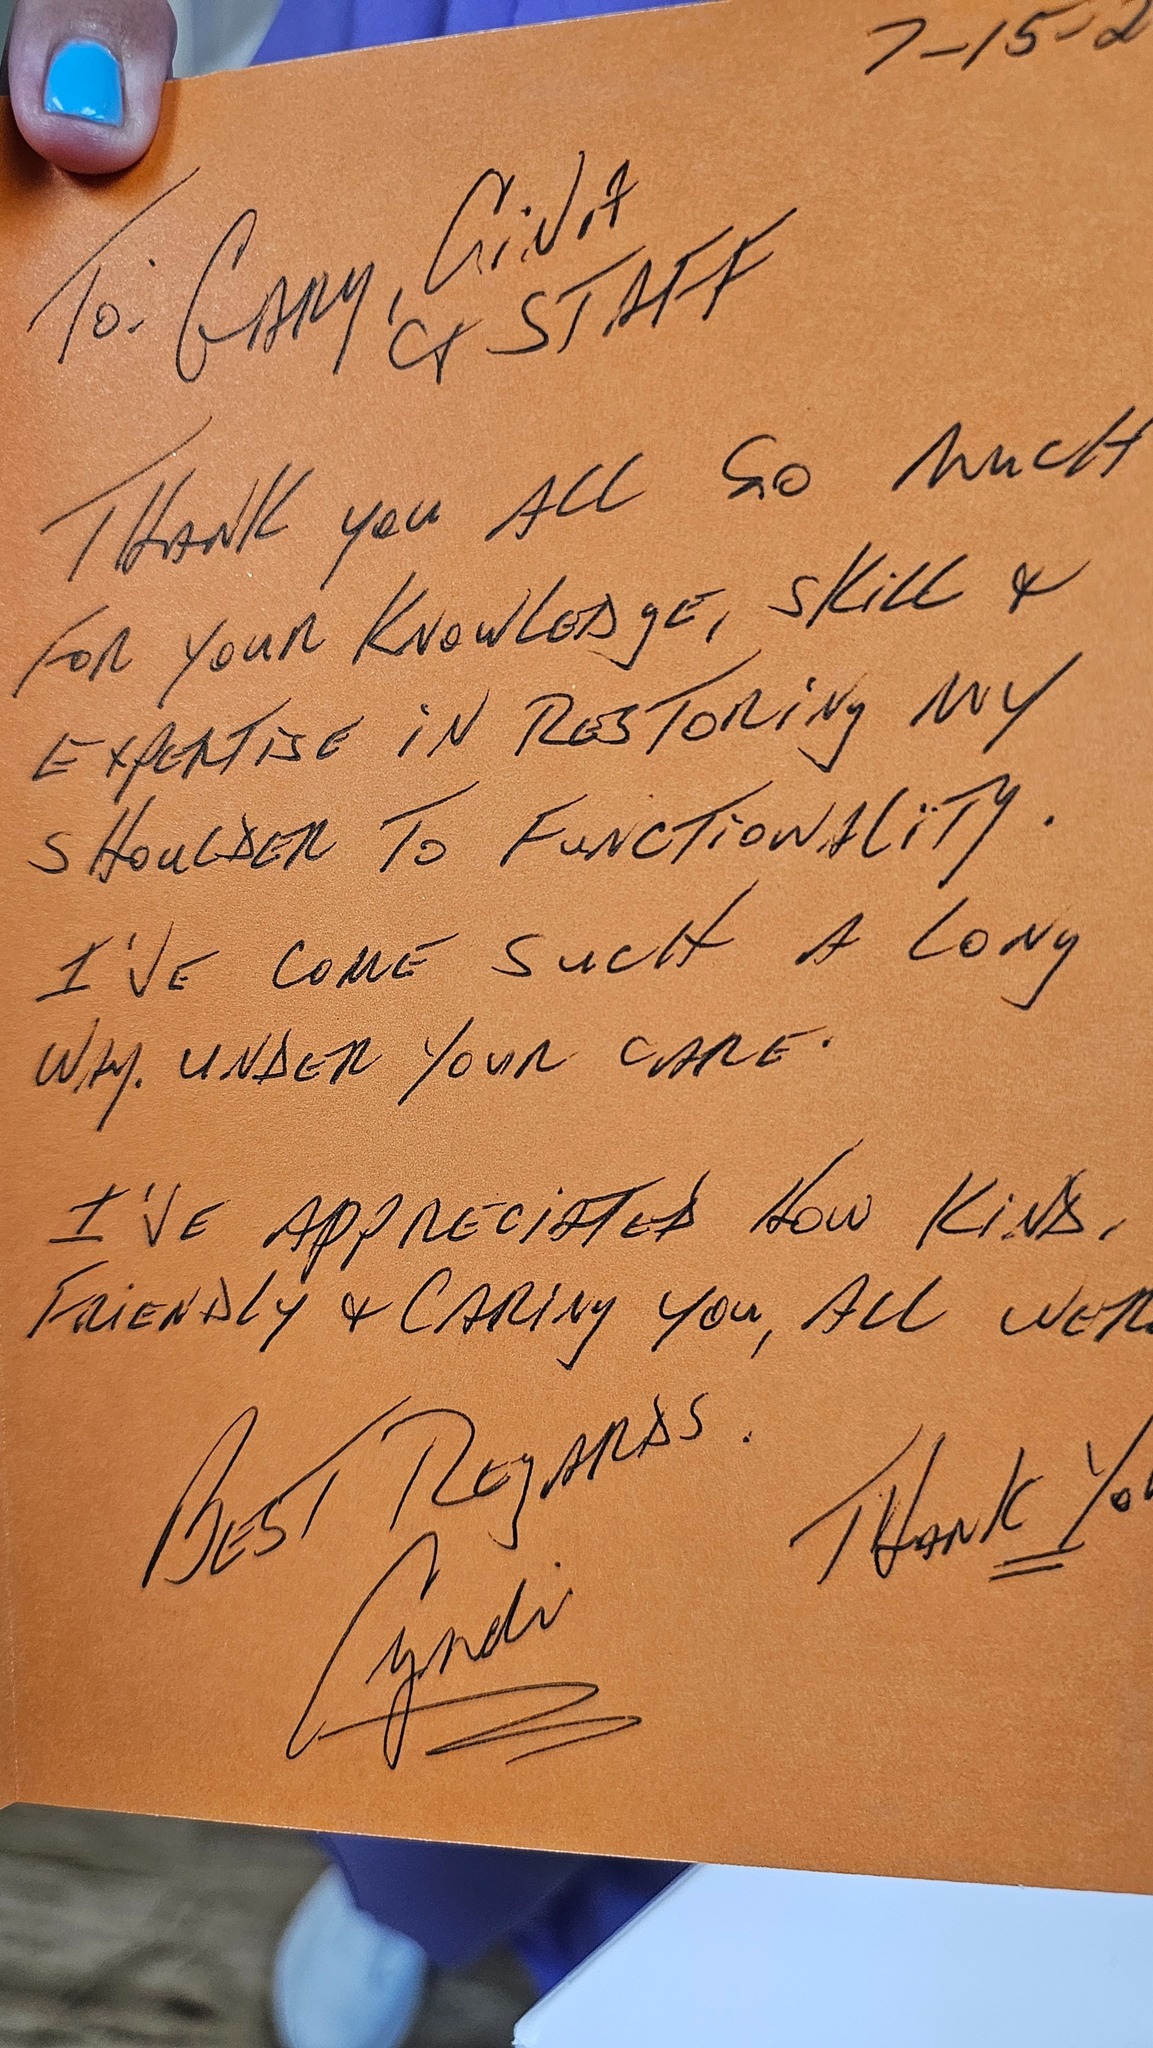 7-15-2
To: GARY, GiNA
& STAFF
THANK you ALL SO MUCH
FOR YOUR KNOWLEDgE, SKiLL &
EXPERTISE iN RESTORiNg MY
SHOULDER TO FUNCTiONALiTY.
I'VE COME SUCH A LONg
WAY. UNDER YOUR CARE.
I'VE APPRECIATED HOW KiND,
FRiENDLY & CARiNg YOU, ALL WER
BEST REgARDS.
THANK YOU
Cyndi